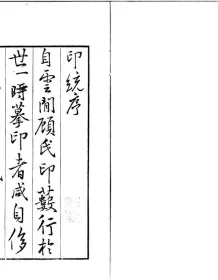 印統序
自雲間顧氏印藪行於
世一時摹印者咸自侈